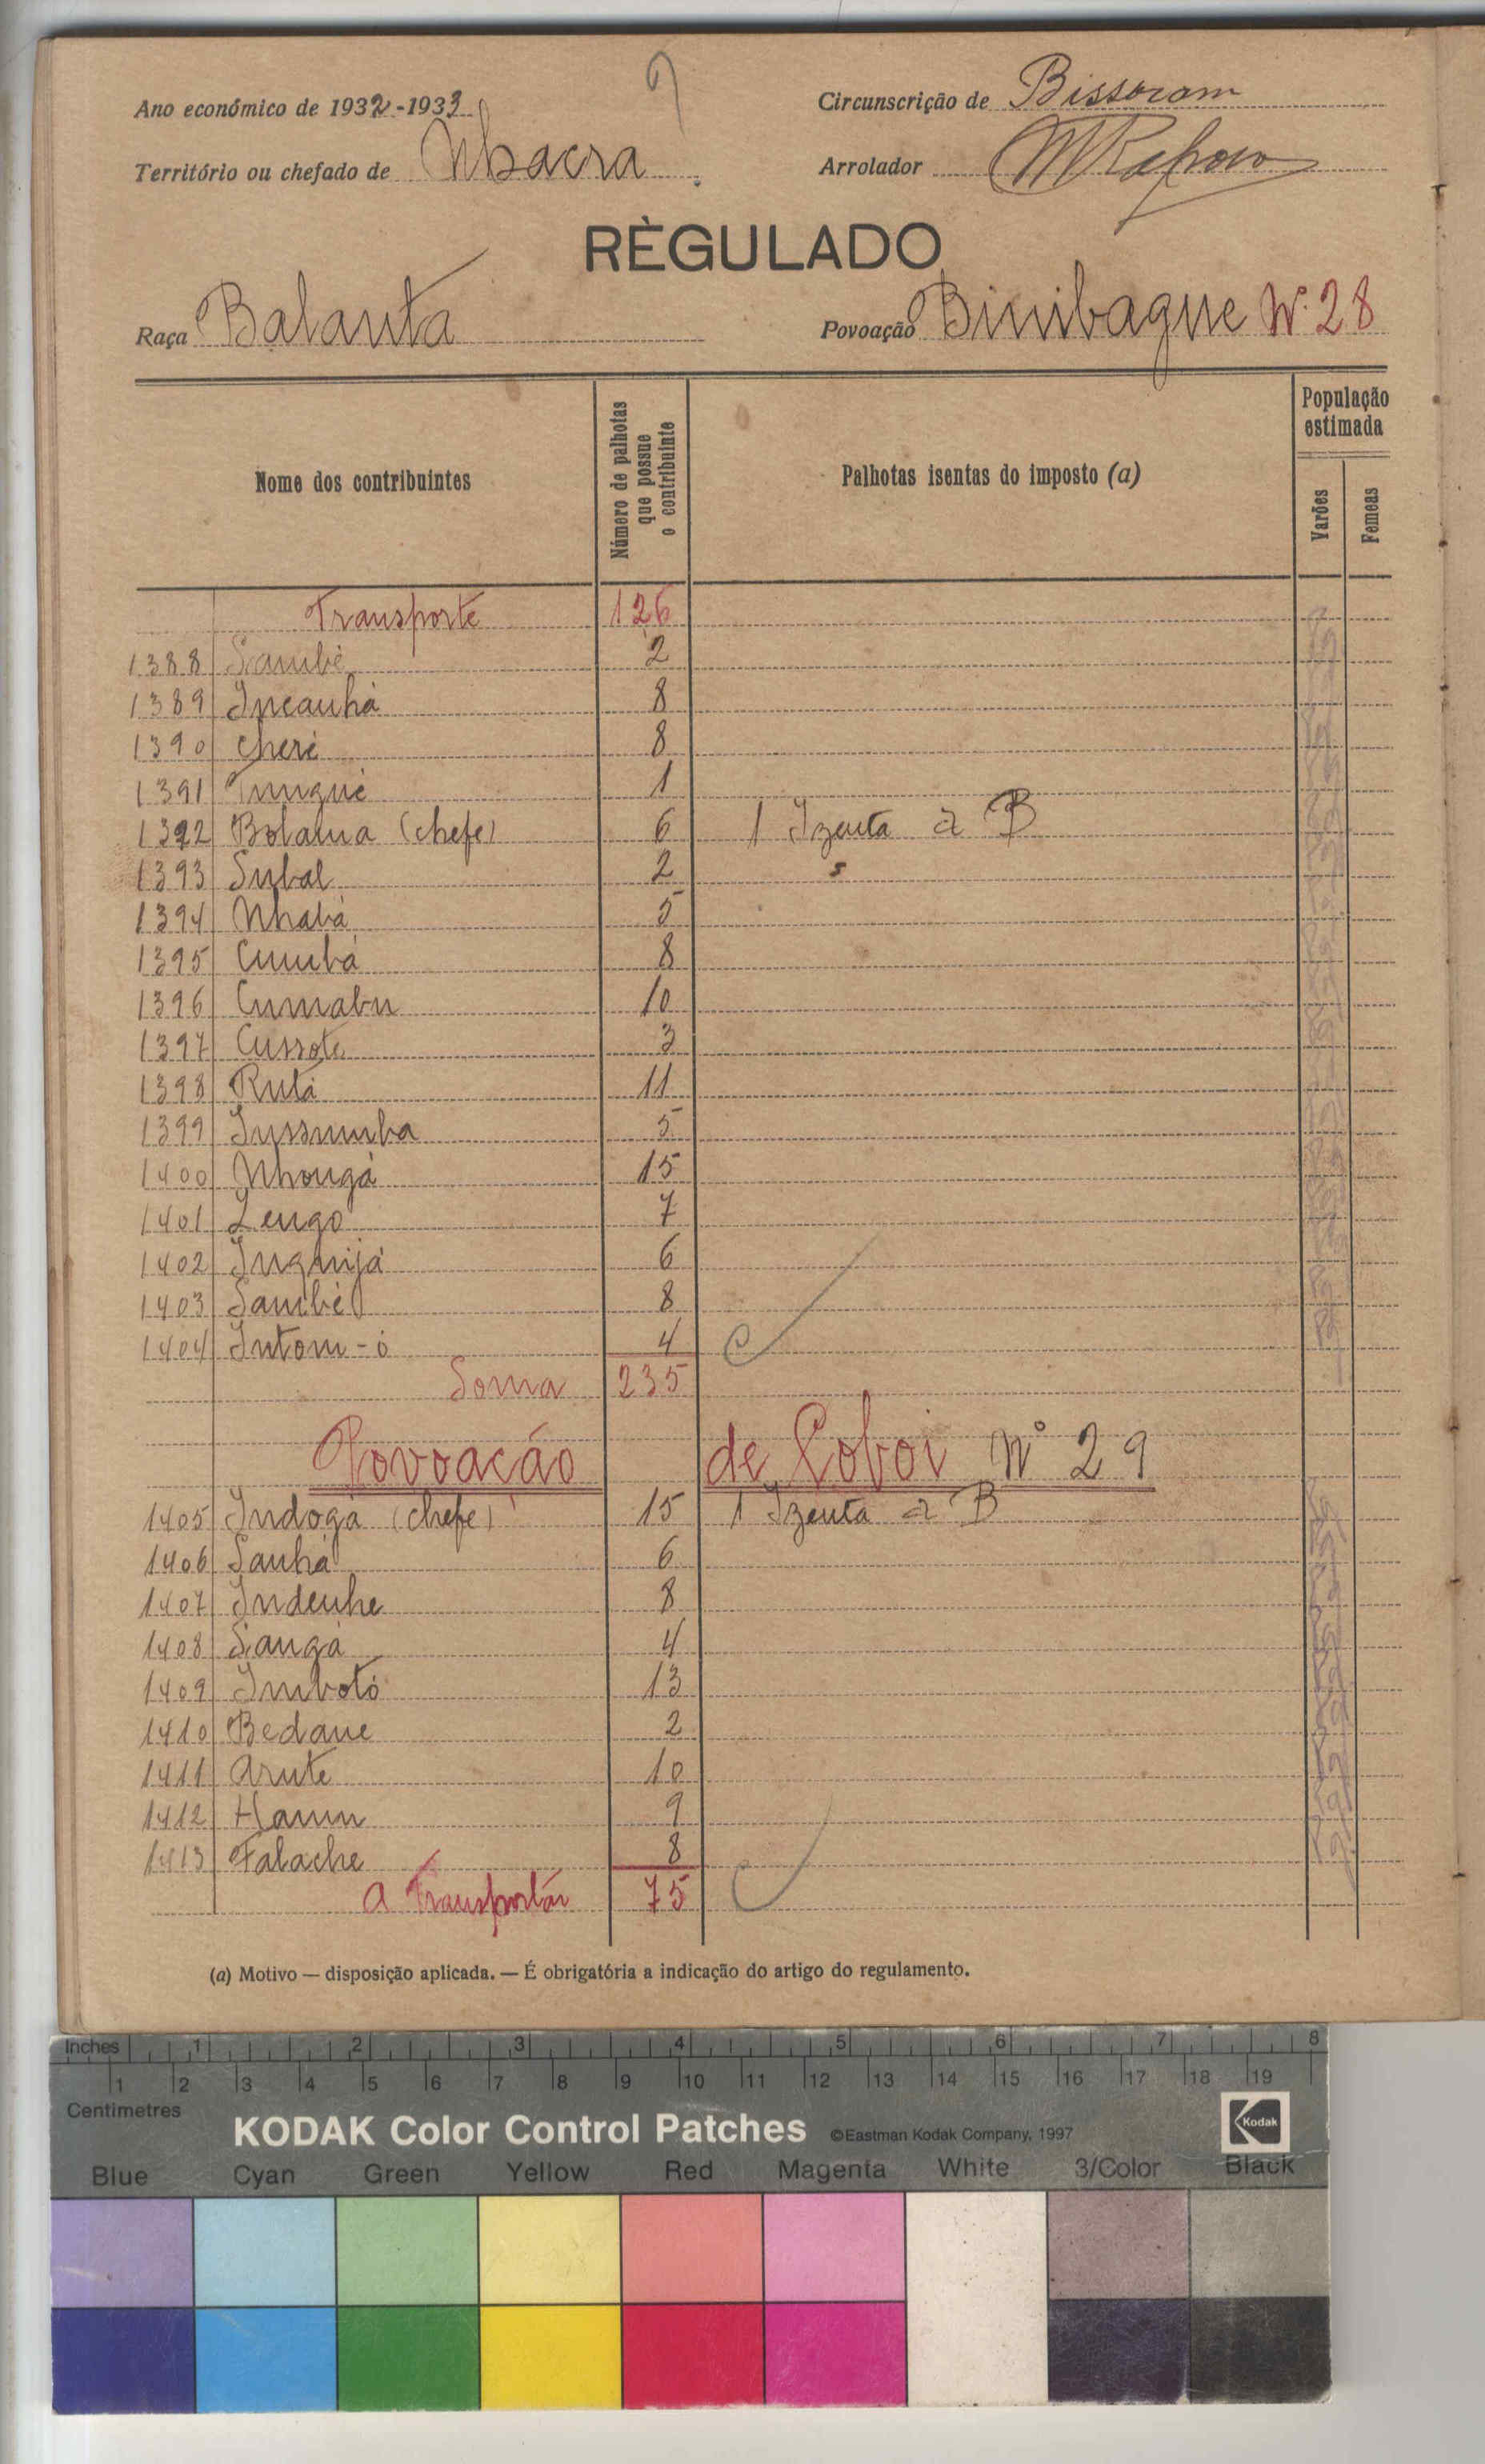 Ano económico de 1932-1933
Circunscrição de Bissoram
Território ou chefado de Nhacra
Arrolador
RÈGULADO
Raça Balanta
Povoação Binibaque Nº 28
Nome dos contribuintes
Número de palhotas que possue o contribuinte
Palhotas isentas do imposto (a)
População estimada
Varões
Femeas
Transporte 126
1388 Sambé 2
1389 Incanhá 8
1390 Cheré 8
1391 Tungué 1
1392 Bolama (chefe) 6 1 Izenta a B
1393 Subal 2
1394 Nhabá 5
1395 Cumbá 8
1396 Cumabu 10
1397 Cussote 3
1398 Rutá 11
1399 Inssumba 5
1400 Nhongá 15
1401 Lengo 7
1402 Inquijá 6
1403 Sambé 8
1404 Intom-ó 4
Soma 235
Povoação de Loboi Nº 29
1405 Indogá (chefe) 15 1 Izenta a B
1406 Sanhá 6
1407 Indenhe 8
1408 Sangá 4
1409 Imbotó 13
1410 Bedane 2
1411 Arute 10
1412 Hamn 9
1413 Falache 8
A Transportar 75
(a) Motivo — disposição aplicada. — É obrigatória a indicação do artigo do regulamento.
Inches 1 2 3 4 5 6 7 8
1 2 3 4 5 6 7 8 9 10 11 12 13 14 15 16 17 18 19
Centimetres
KODAK Color Control Patches ©Eastman Kodak Company, 1997 Kodak
Blue Cyan Green Yellow Red Magenta White 3/Color Black